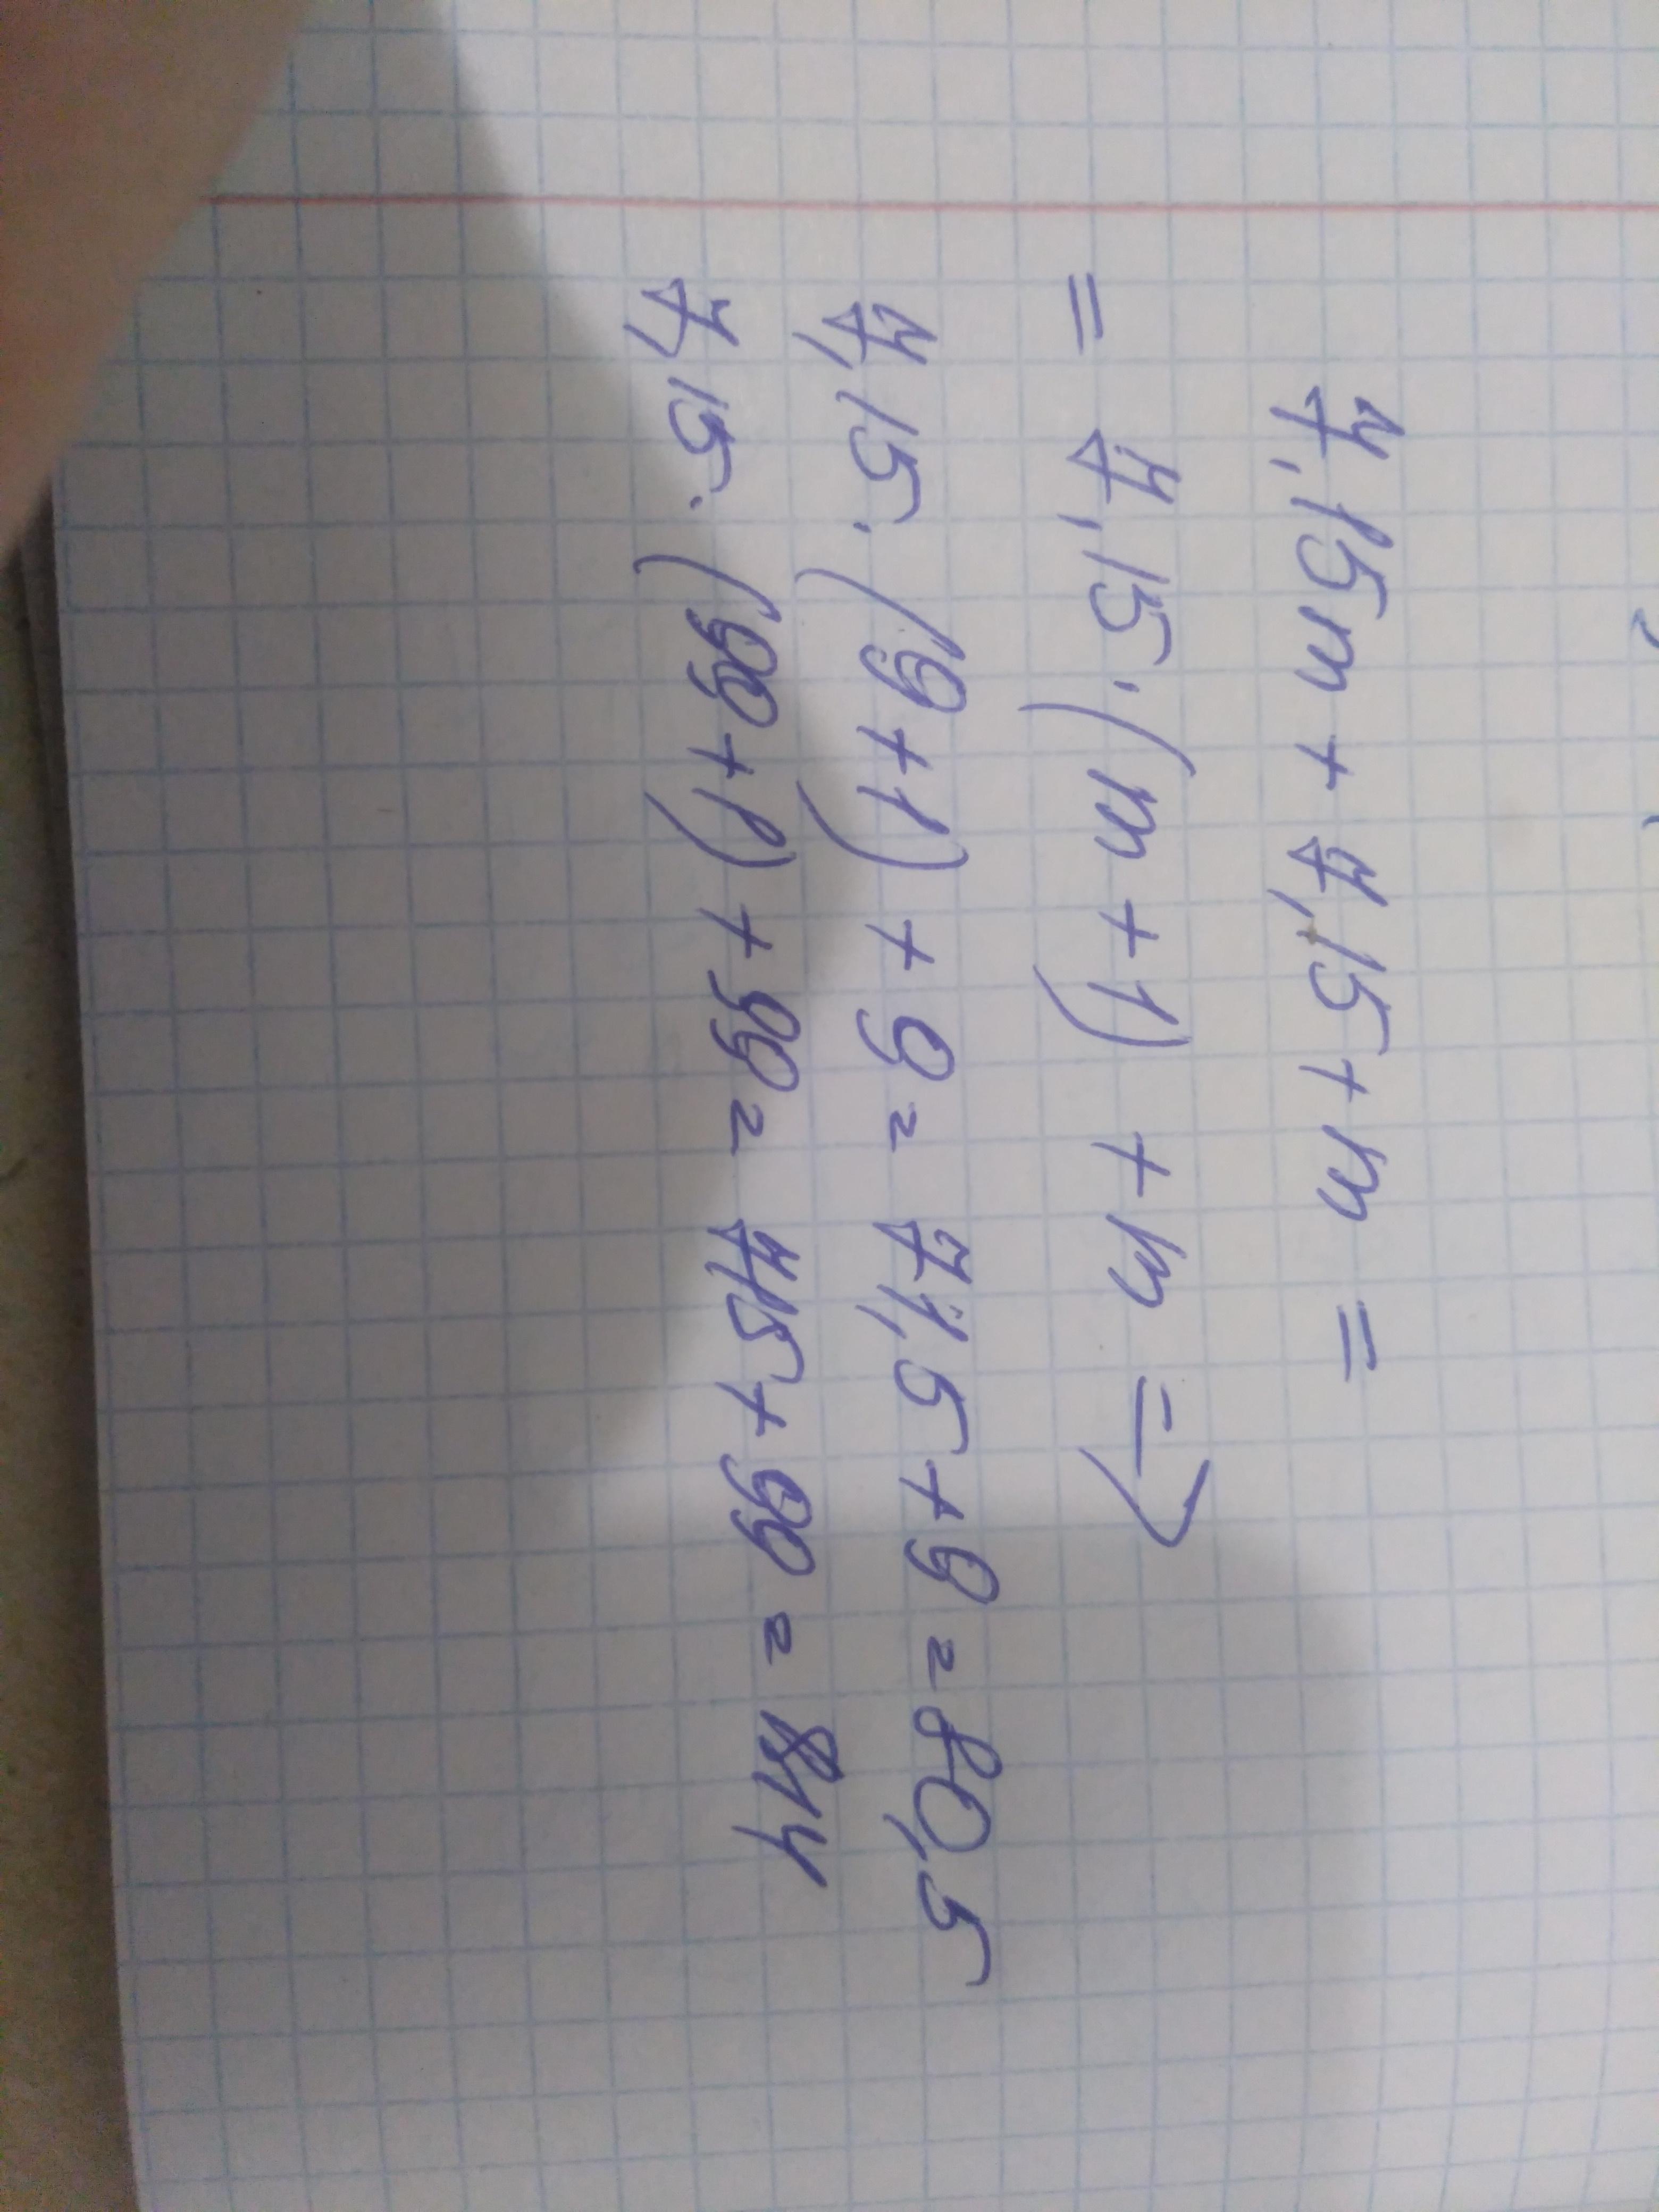 7,15m + 7,15 + m =
= 7,15 · (m + 1) + m =>
7,15 · (9 + 1) + 9 = 71,5 + 9 = 80,5
7,15 · (99 + 1) + 99 = 715 + 99 = 814